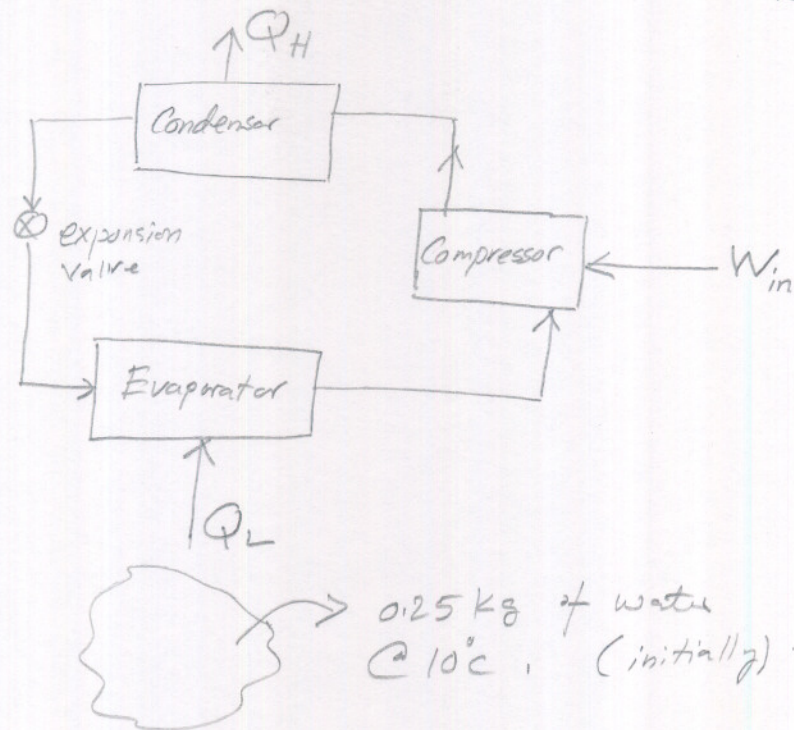 Q_H
Condensor
expansion
valve
Compressor
W_in
Evaporator
Q_L
0.25 Kg of water
@ 10°C . (initially)